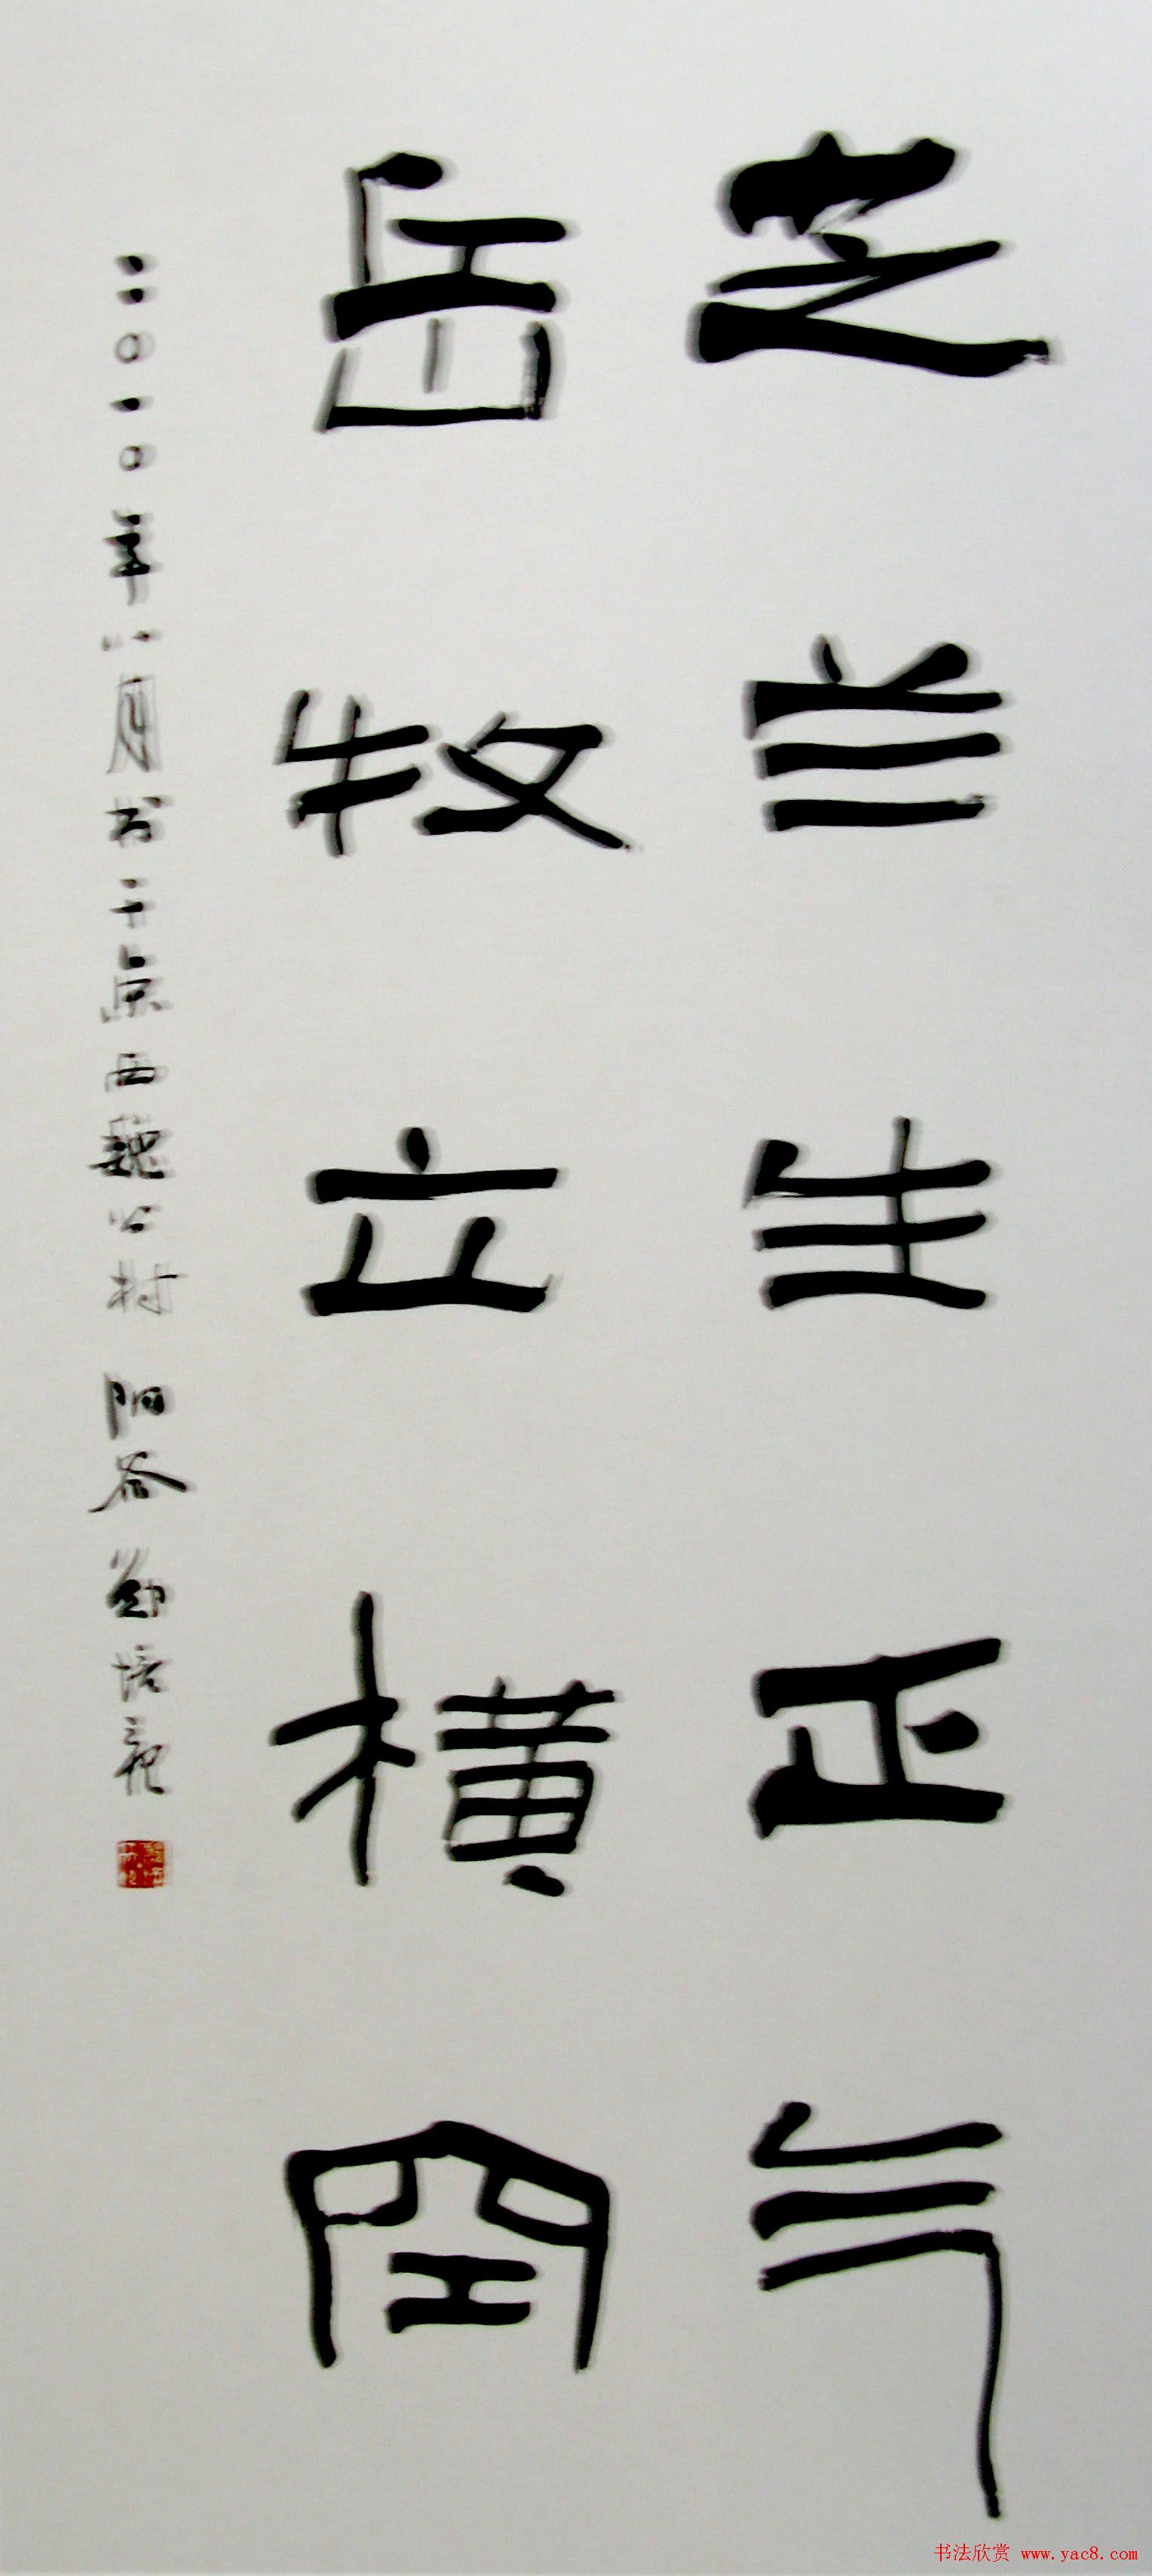 芝兰生正气
岳牧立横空
二〇一〇年八月书于京西魏公村 阳谷 邹培龍
书法欣赏 www.yac8.com